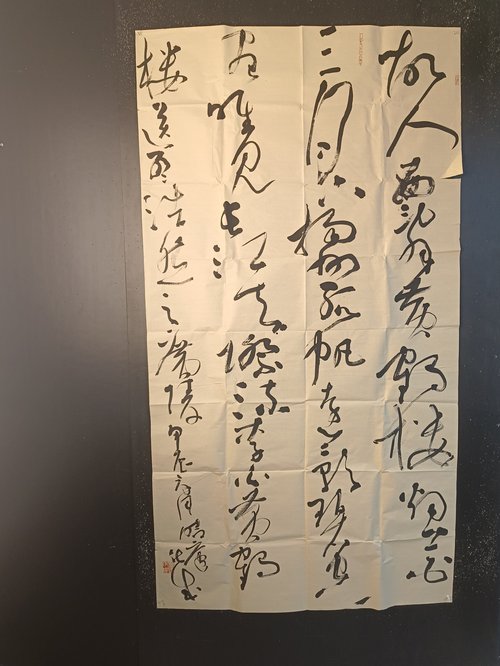 故人西辞黄鹤楼烟花
三月下扬州孤帆远影碧空
尽唯见长江天际流李白黄鹤
楼送孟浩然之广陵甲辰